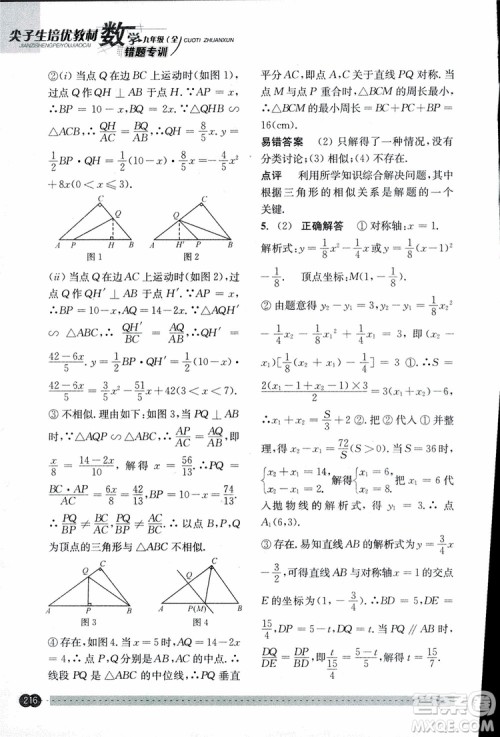 尖子生培优教材
JIANZISHENGPEIYOUJIAOCAI
数学九年级(全)
CUOTI ZHUANXUN
错题专训
②(i) 当点 Q 在边 BC 上运动时(如图 1),
过点 Q 作 QH ⊥ AB 于 H. ∵ AP = x,
∴ BP = 10 − x, ∴ △QHB ∽ △ACB.
∴ QH/AC = QB/AB. ∴ QH = 8/5 x. y = 1/2 BP·
QH = 1/2 (10 − x)· 8/5 x = − 4/5 x² +
8x(0 < x ≤ 3).
图 1
图 2
(ii) 当点 Q 在边 CA 上运动时(如图 2),
过点 Q 作 QH′ ⊥ AB 于 H′, ∵ AP = x,
∴ BP = 10 − x, AQ = 14 − 2x. ∵ △AQH′
∽ △ABC, ∴ QH′/BC = AQ/AB. ∴ QH′ =
(42 − 6x)/5. ∴ y = 1/2 BP·QH′ = 1/2 (10 − x)·
(42 − 6x)/5 = 3/5 x² − 51/5 x + 42(3 < x < 7).
③ 不相似. 理由: ∵ AP = x, ∴ AQ = 14 −
2x. ∵ △AQP ∽ △ABC, ∴ AP/AC = AQ/AB,
x/8 = (14 − 2x)/10, 解得 x = 56/13. ∴ PQ =
BC·AP/AC = 42/13. ∴ PB = 10 − x = 74/13.
∴ PQ/BP ≠ BC/AC, PQ/BP ≠ AC/BC. ∴ 以点 B、P、Q
为顶点的三角形与 △ABC 不相似.
图 3
图 4
④ 存在, 如图 4, 当 x = 5 时, AQ = 14 − 2x
= 4. ∴ Q 是 AC 的中点, P 是 AB 的中
点. ∴ PQ 是 △ABC 的中位线, ∴ PQ 垂直
平分 AC. ∴ 点 C、A 关于直线 PQ 对称. 当
点 M 与点 P 重合时, △BCM 的周长最
小. △BCM 的最小周长 = BC + PC + BP =
16(cm).
易错答案 (2) 只解得了一种情况, 没有
分类讨论; (3) 相似; (4) 不存在.
点评 利用所学知识综合解决问题, 其中
根据三角形的相似关系是解题的一大
关键.
5. (2) 正确解答 ① 对称轴: x = 1.
解析式: y = 1/8 x² − 1/4 x 或 y = 1/8 (x − 1)²
− 1/8. 顶点坐标: M(1, − 1/8).
② 由题意得 y₂ − y₁ = 3, 1/8 x₂² − 1/4 x₂ −
1/8 x₁² + 1/4 x₁ = 3. 即得: (x₂ −
x₁)[1/8 (x₂ + x₁) − 1/4] = 3. ∴ S =
2(x₁ − 1 + x₂ − 1)×3/2 = 3(x₁ + x₂) − 6. 即
得: x₁ + x₂ = S/3 + 2. 把 ② 代入 ① 并整
理, 得: x₂ − x₁ = 72/S (S > 0). 当 S = 36 时,
{x₁ + x₂ = 14, x₂ − x₁ = 2, 解得: {x₁ = 6, x₂ = 8. 把 x₁ = 6
代入抛物线的解析式得 y₁ = 3. ∴ 点
A₁(6,3).
③ 存在. 易知直线 AB 的解析式为 y = 3/4 x
− 3/2, 可得直线 AB 与对称轴的交点
E 的坐标为 (1, − 3/4). ∴ BD = 5, DE =
15/4, DP = 5 − t, DQ = t. 当 PQ ∥ AB 时,
DQ/DE = DP/DB, t/(15/4) = (5 − t)/5. 得 t = 15/7. 下面分
216